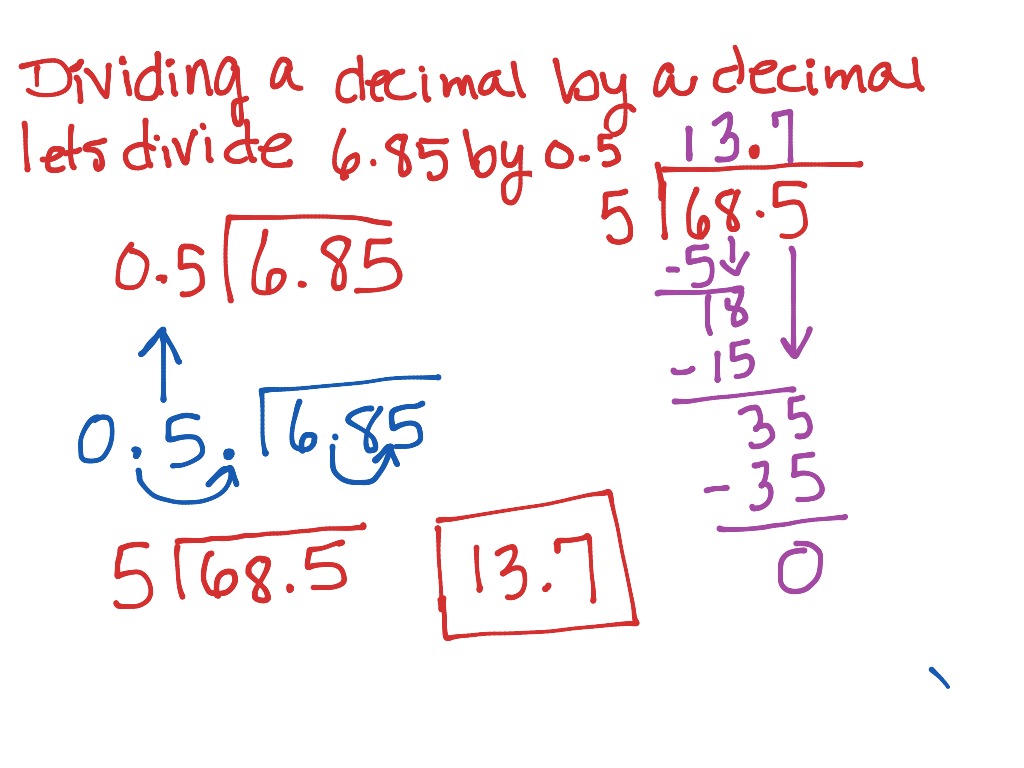 Dividing a decimal by a decimal
lets divide 6.85 by 0.5
13.7
5 68.5
-5
18
-15
35
-35
0
0.5 6.85
0.5. 6.85
5 68.5
13.7